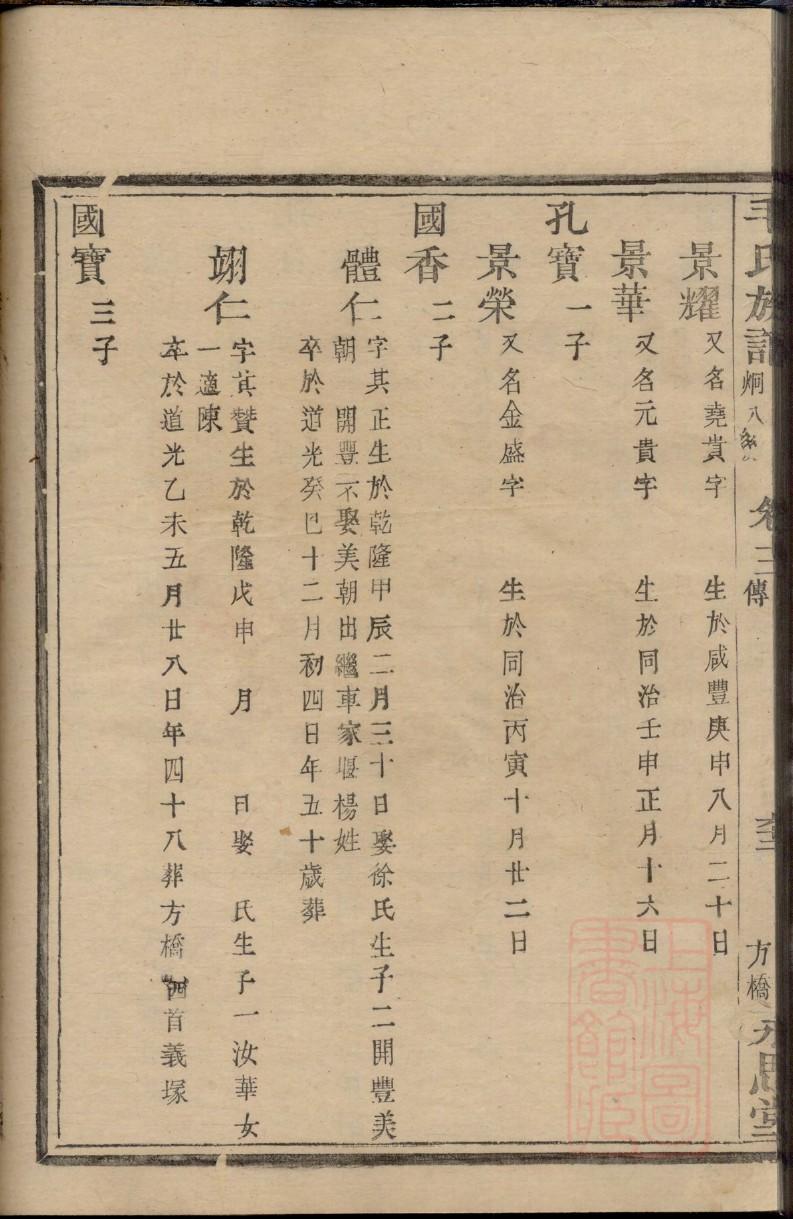 毛氏族譜 炯八 卷三 傳 方橋 永思堂
景耀 又名堯貴字 生於咸豐庚申八月二十日
景華 又名元貴字 生於同治壬申正月十六日
孔寶 一子
景榮 又名金盛字 生於同治丙寅十月廿二日
國香 二子
體仁 字其正生於乾隆甲辰二月三十日娶徐氏生子二開豐美
朝 開豐不娶美朝出繼車家堰楊姓
卒於道光癸巳十二月初四日年五十歲葬
翊仁 字其贊生於乾隆戊申 月 日娶 氏生子一汝華女
一適陳
卒於道光乙未五月廿八日年四十八葬方橋西首義塚
國寶 三子
上海圖書館藏